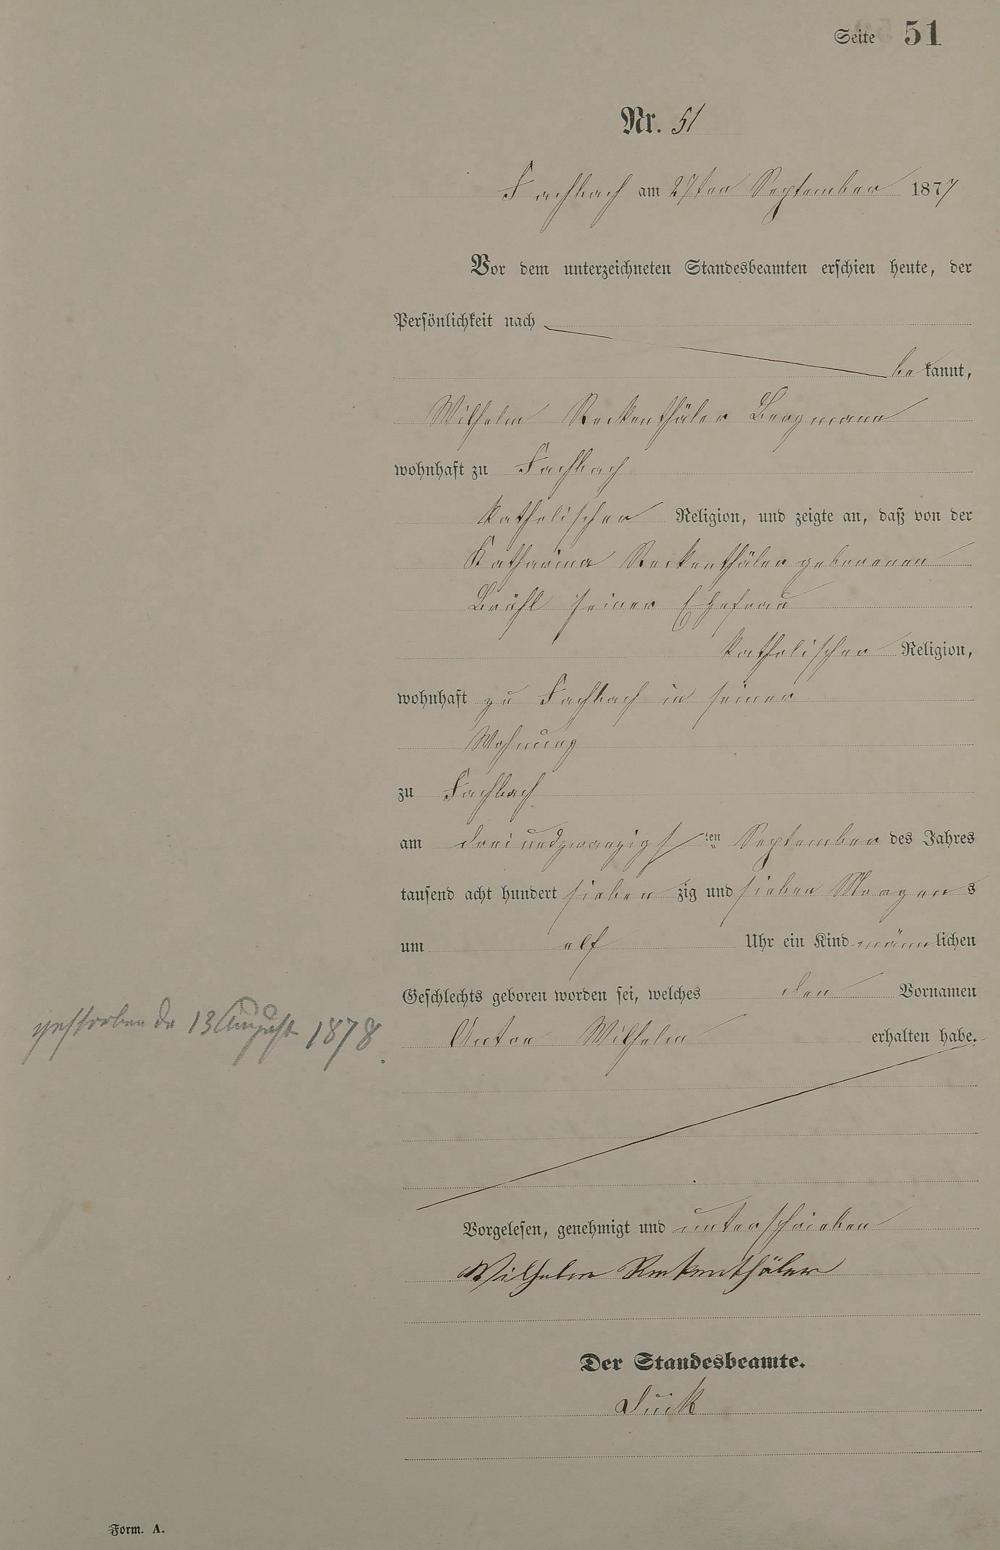 Seite 51
Nr. 51
Fachbach am 27ten September 1877
Vor dem unterzeichneten Standesbeamten erschien heute, der
Persönlichkeit nach
bekannt,
Wilhelm Reckenthäler Bergmann
wohnhaft zu Fachbach
katholischer Religion, und zeigte an, daß von der
Katharina Reckenthäler geborenen
Brühl seiner Ehefrau
katholischer Religion,
wohnhaft zu Fachbach in seiner
Wohnung
zu Fachbach
am dreiundzwanzigsten September des Jahres
tausend acht hundert siebenzig und sieben Morgens
um elf Uhr ein Kind männlichen
Geschlechts geboren worden sei, welches den Vornamen
gestorben de 13 August 1878.
Anton Wilhelm erhalten habe.
Vorgelesen, genehmigt und unterschrieben
Wilhelm Reckenthäler
Der Standesbeamte.
Form. A.